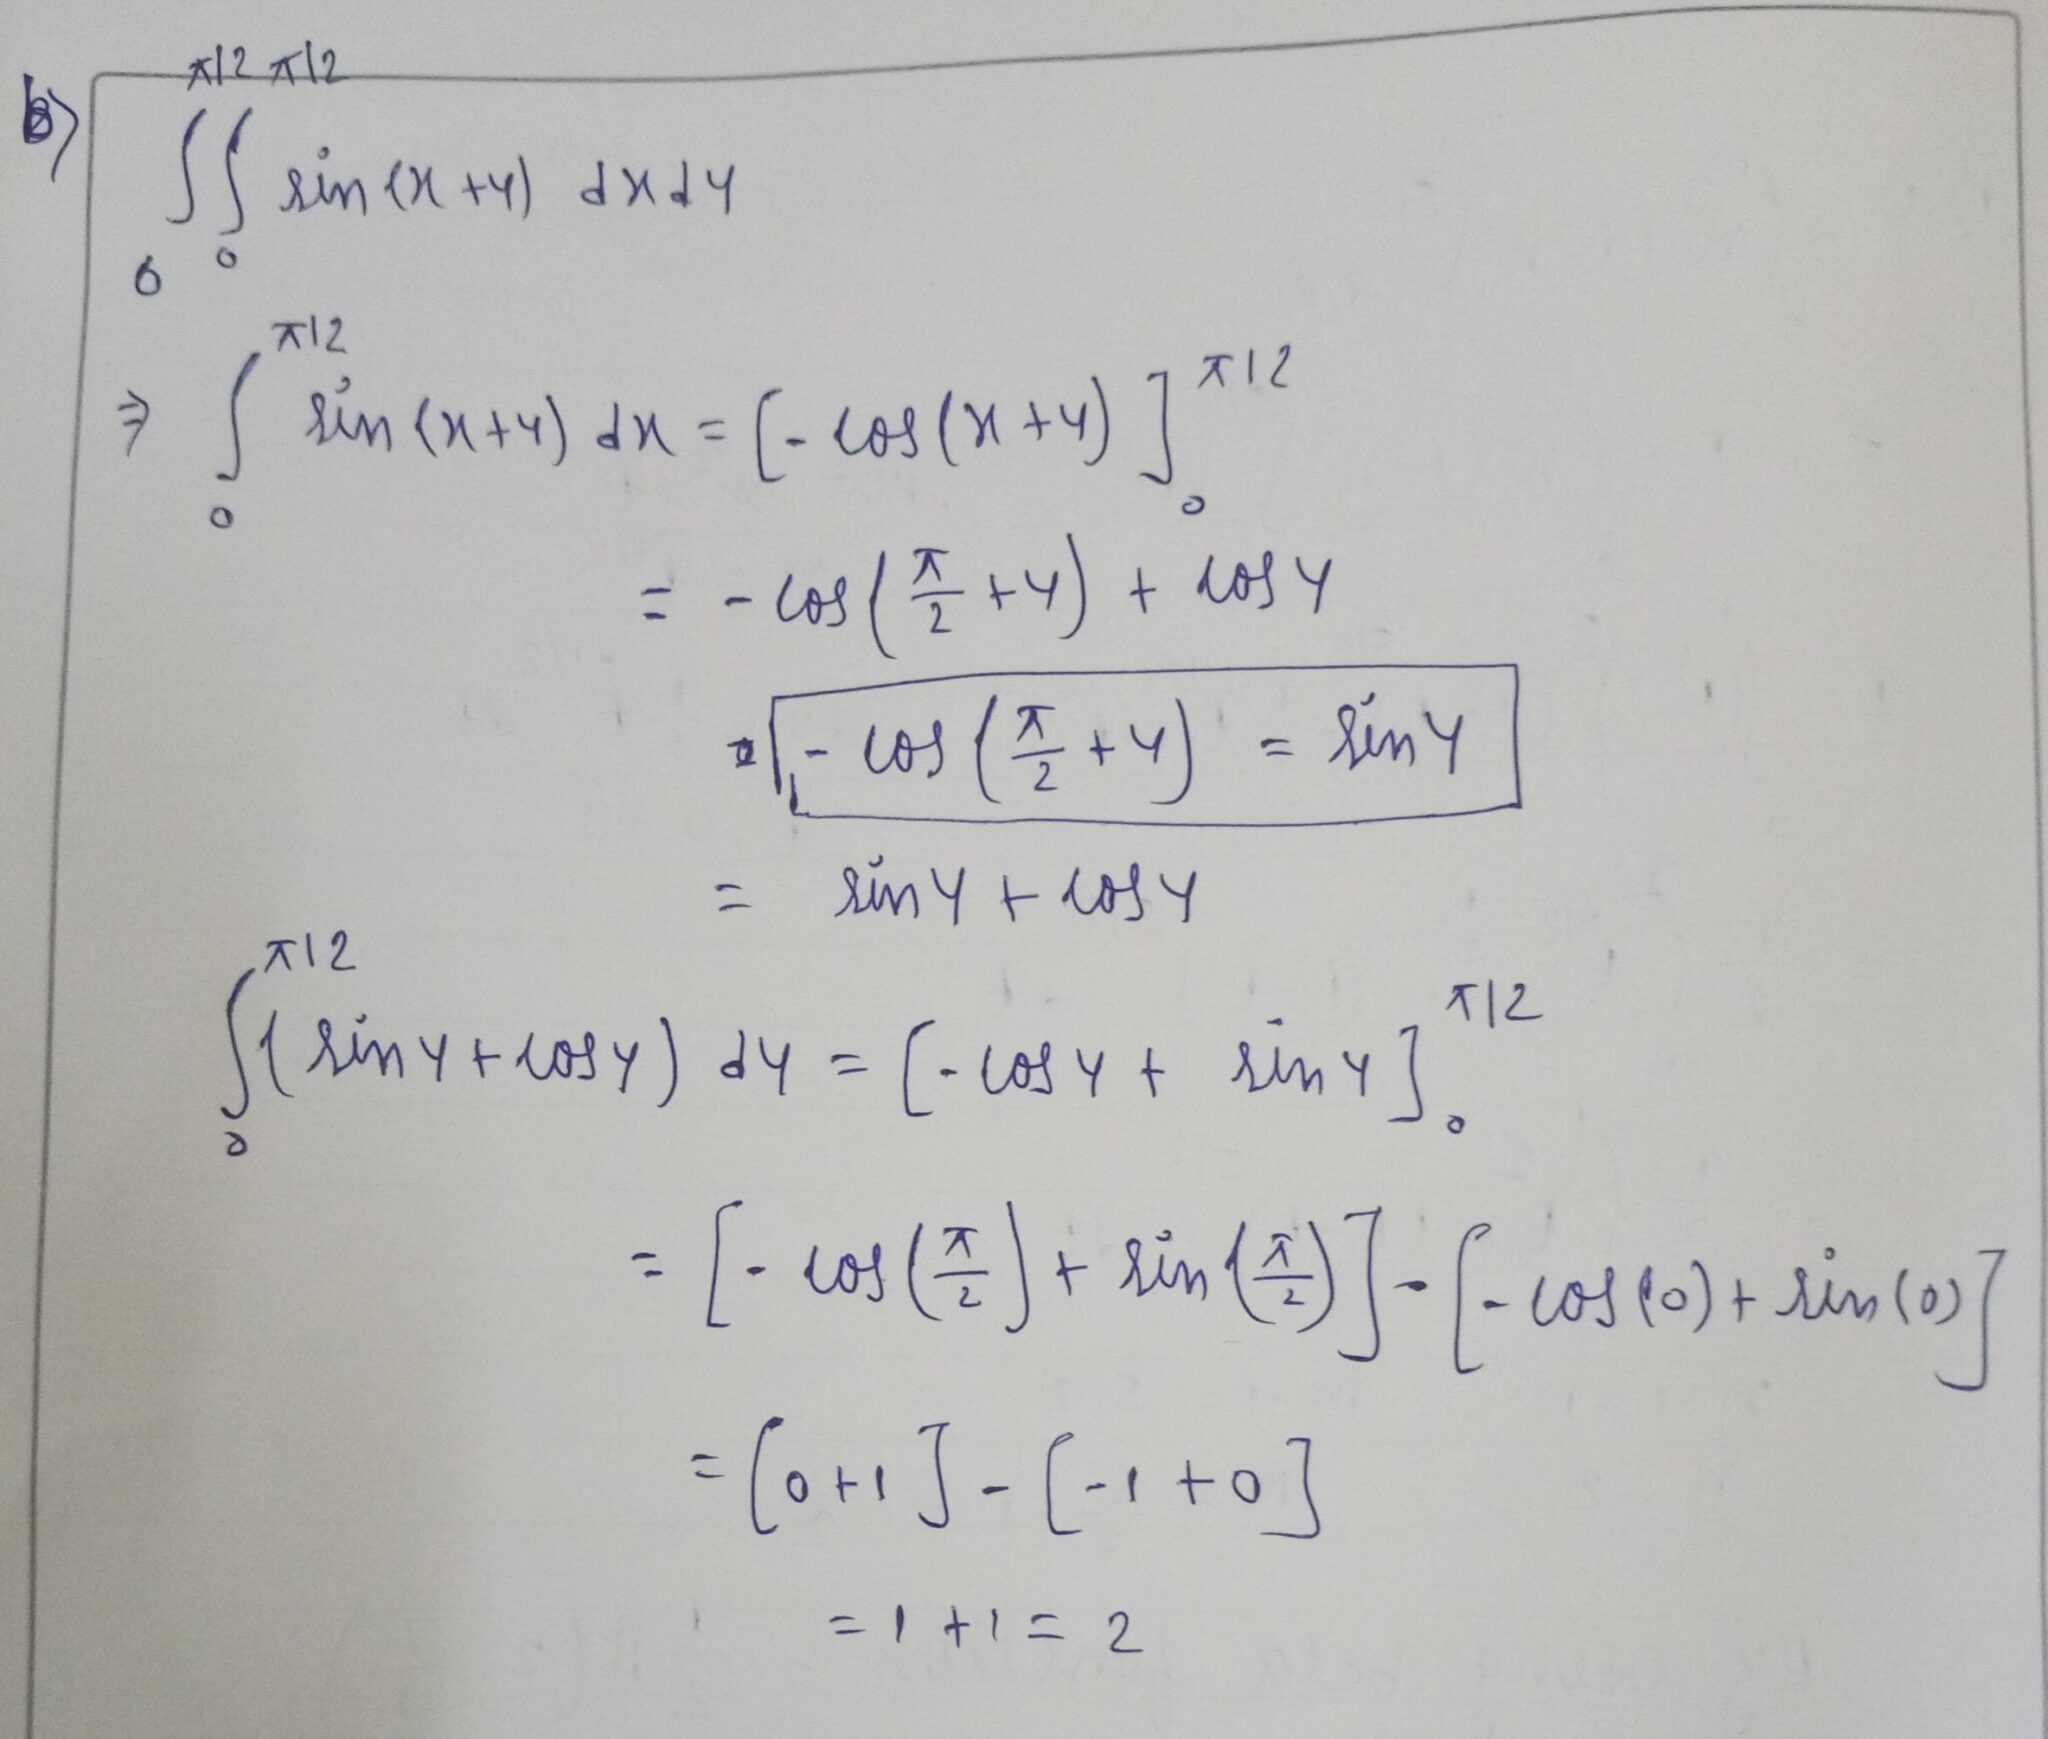 b) ∫₀^π/2 ∫₀^π/2 sin(x+y) dx dy
⇒ ∫₀^π/2 sin(x+y) dx = [-cos(x+y)]₀^π/2
= -cos(π/2 + y) + cos y
-cos(π/2 + y) = sin y
= sin y + cos y
∫₀^π/2 (sin y + cos y) dy = [-cos y + sin y]₀^π/2
= [-cos(π/2) + sin(π/2)] - [-cos(0) + sin(0)]
= [0+1] - [-1+0]
= 1+1 = 2